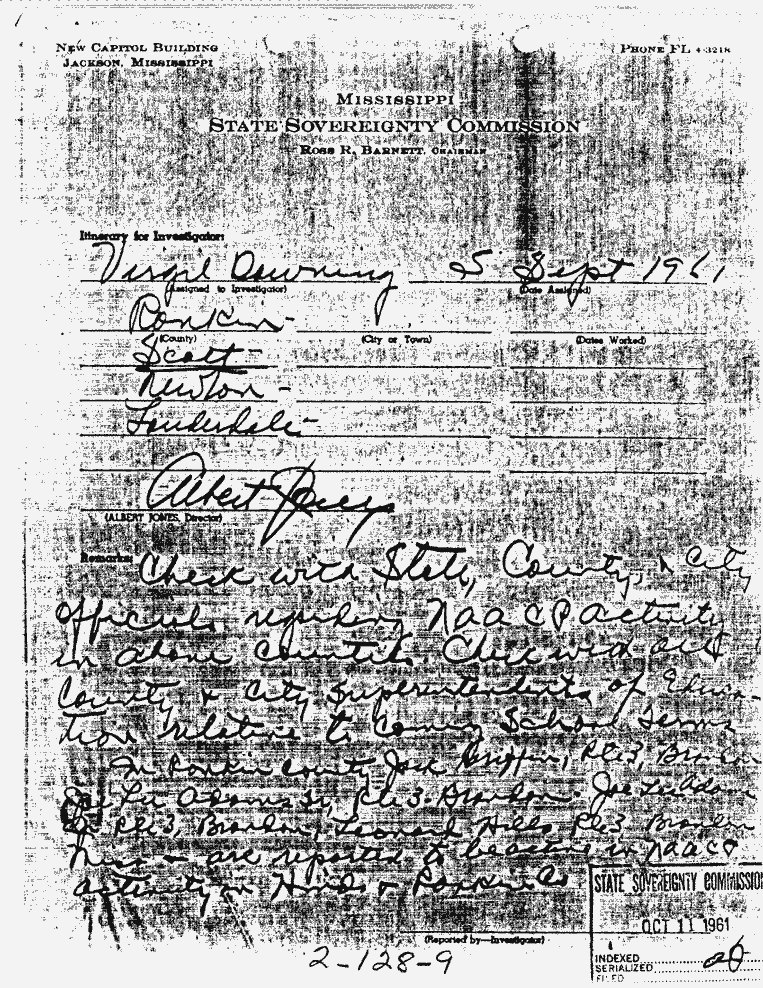 NEW CAPITOL BUILDING
JACKSON, MISSISSIPPI
PHONE FL 4-3218
MISSISSIPPI
STATE SOVEREIGNTY COMMISSION
ROSS R. BARNETT, CHAIRMAN
Itinerary for Investigator:
Virgil Downing 5 Sept 1961
(Assigned to Investigator) (Date Assigned)
Rankin -
(County) (City or Town) (Dates Worked)
Scott -
Newton -
Lauderdale -
Albert Jones
(ALBERT JONES, Director)
Remarks: Check with State, County, & City
officials regarding NAACP activity
in above counties. Check with all
County & City Superintendents of Educa-
tion relative to coming School terms
In Rankin County Jack Griffin, Rte 3, Brandon
Joe Lee Adams Sr, Rte 3 Brandon. Joe
Rte 3, Brandon, Leonard Rte 3 Brandon
Miss - are reported to be active in NAACP
activity in Hinds & Rankin Co
STATE SOVEREIGNTY COMMISSION
OCT 11 1961
(Reported by—Investigator)
INDEXED
SERIALIZED
FILED
2-128-9